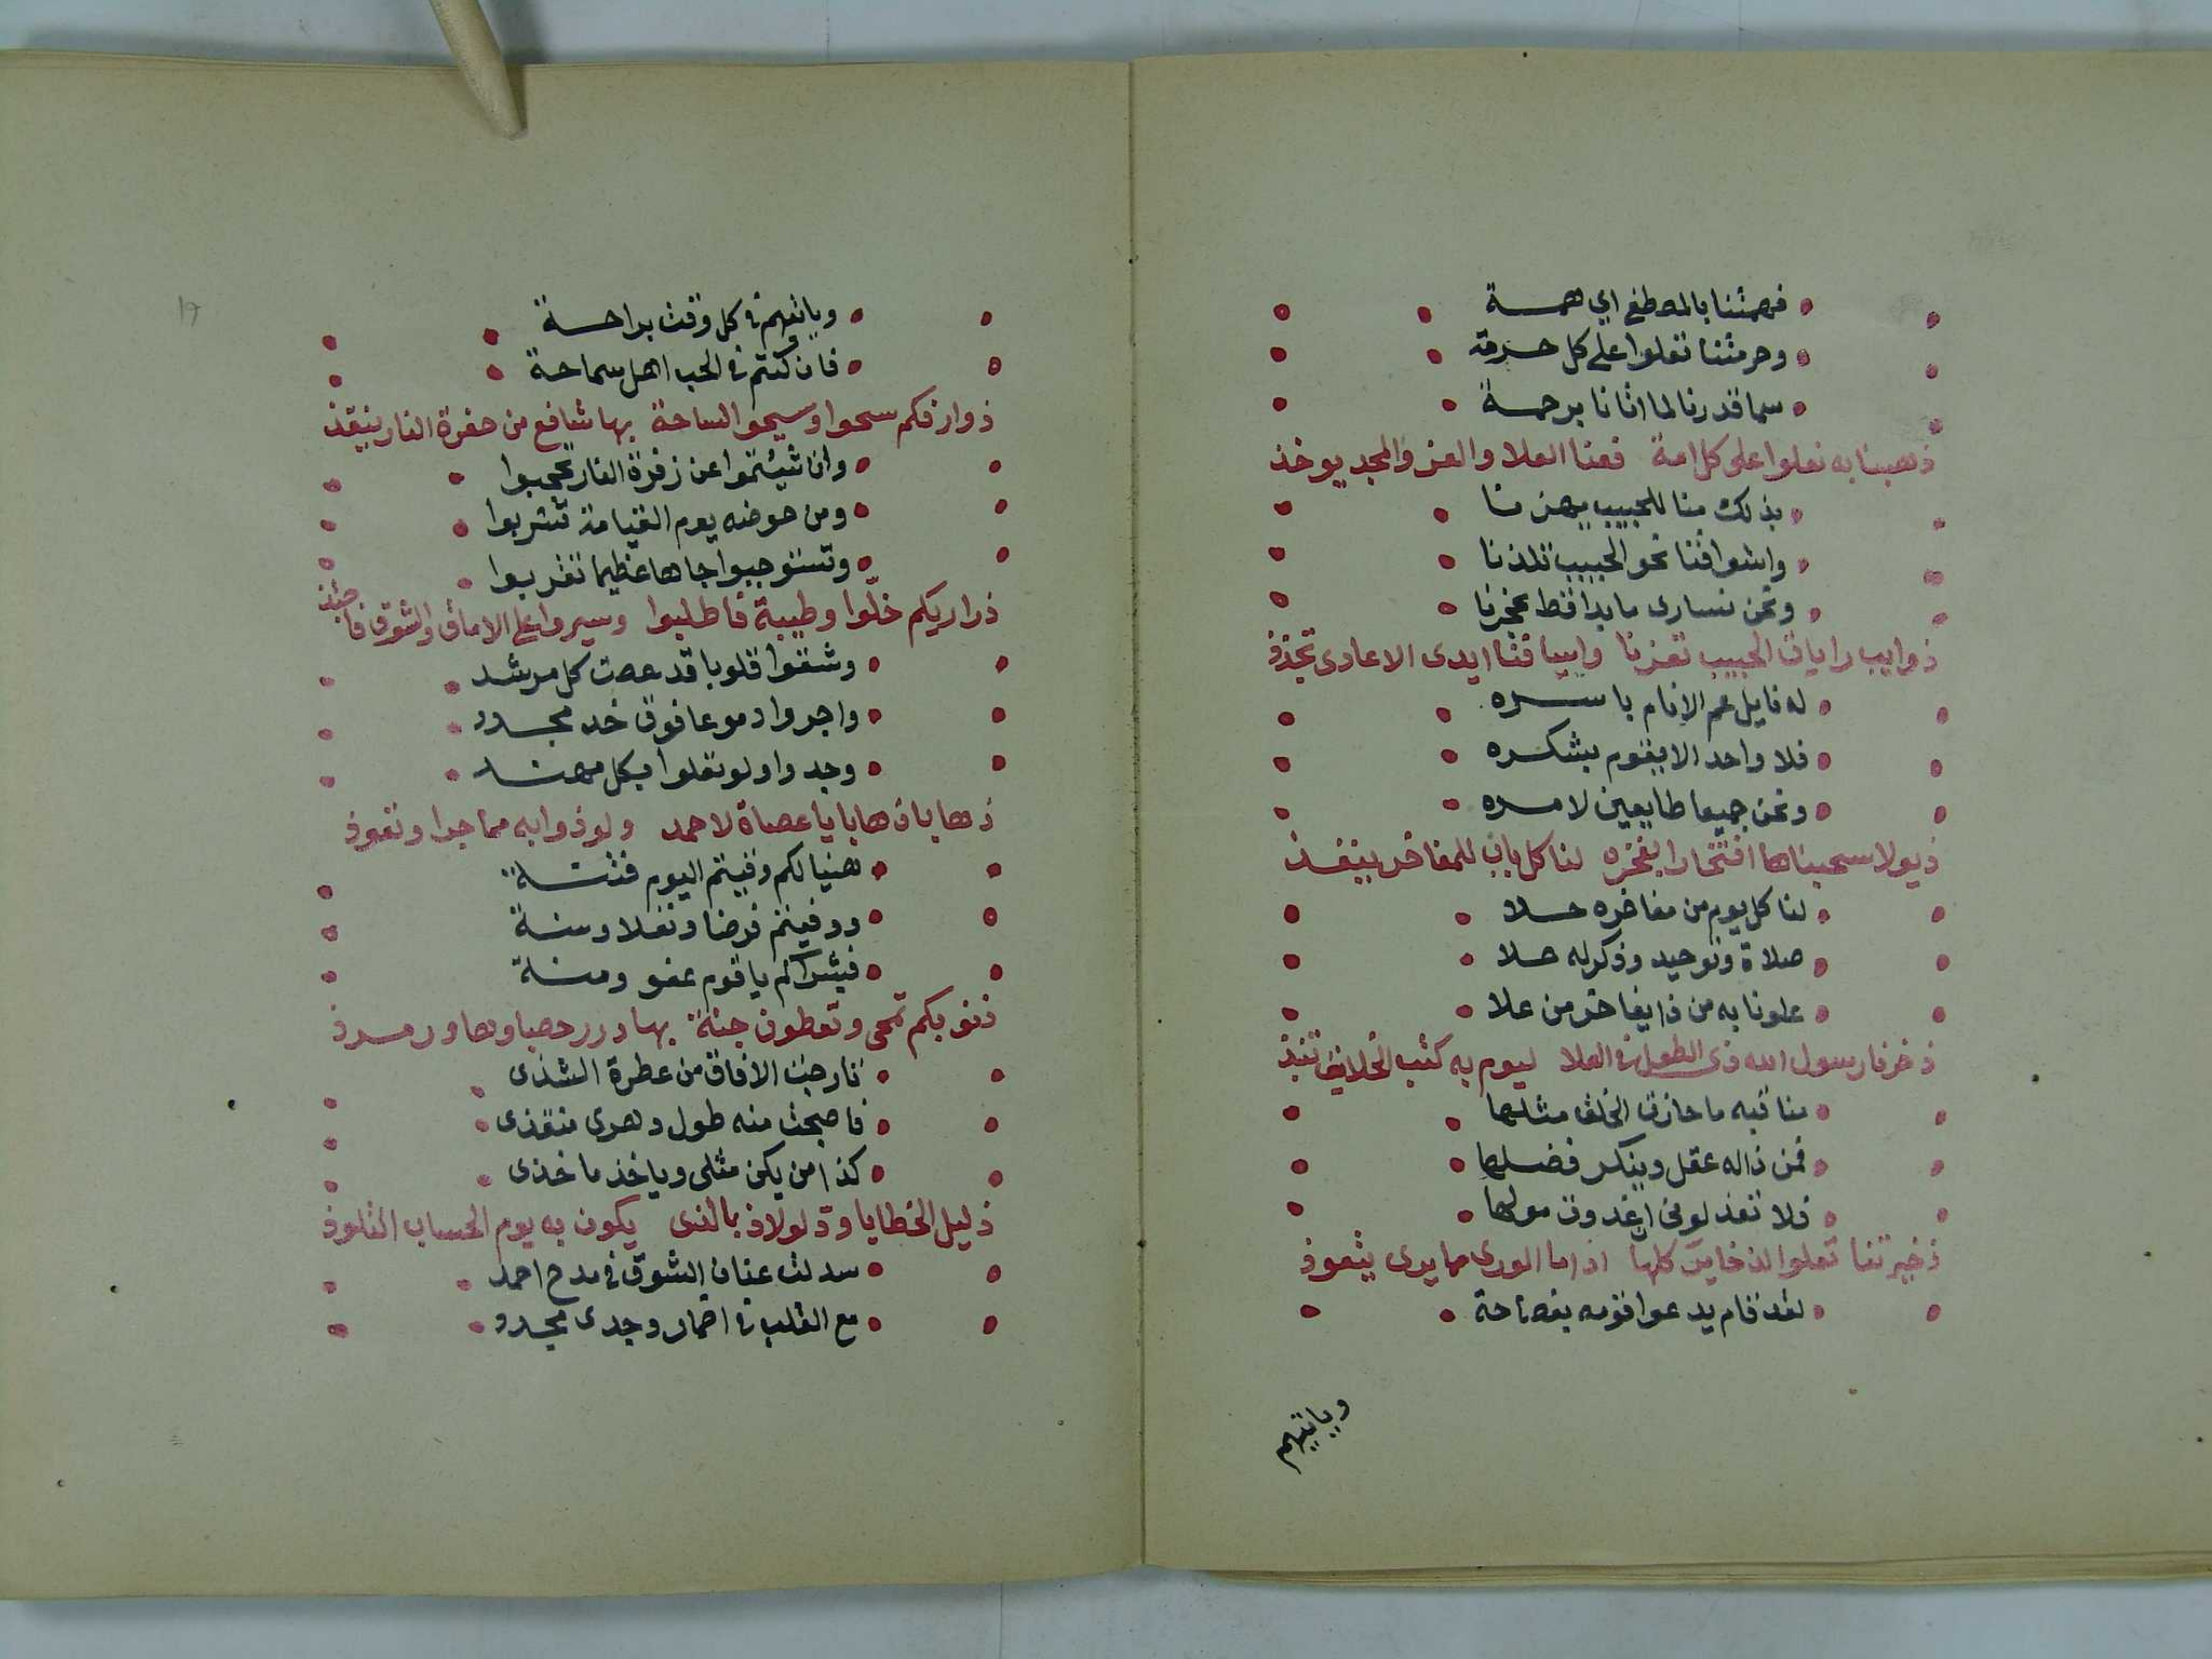 فهمتنا بالمصطفى اي همـــة
وحرمتنا تعلوا على كل حــرمة
سما قدرنا لما اتانا برحمــة
ذهبنا به نعلوا على كل امة فعنا العلا والعز والمجد يوخذ
بذلك منا للحبيب يهزنا
واشواقنا نحو الحبيب تلذنا
ونحن نسارى ما بدا قط عجزنا
ذوايب رايات الحبيب تعزنا واسيافنا ايدى الاعادى تجذذ
له نايل عم الانام باســـره
فلا واحد الا يقوم بشكــره
ونحن جميعا طايعين لامــره
ذيولا سحبناها افتخارا بفخره لنا كل باب للمفاخر ينفــذ
لنا كل يوم من مفاخره حــلا
صلاة وتوحيد وذكر له حــلا
علونا به من ذا يفاخر من علا
ذخرنا رسول الله ذى الطول فى العلا ليوم به كتب الخلايق تنبذ
مناقبه ما حازت الخلق مثلها
فمن ذا له عقل وينكر فضلها
فلا تعذلونى ان غدوت مولها
ذخيرتنا تعلوا الذخاير كلها اذا ما الورى مما يرى يتعوذ
لقد قام يدعوا قومه بفصاحة
وياتيهم
وياتيهم فى كل وقت براحــة
فان كنتم فى الحب اهل سماحة
ذوارفكم سحوا وسيحوا لساحة بها شافع من حفرة النار ينقذ
وان شيئتموا عن زفرة النار تحجبوا
ومن حوضه يوم القيامة تشربوا
وتستوجبوا جاها عظيما تقربوا
ذراريكم خلّوا وطيبة فاطلبوا وسيروا على الاماق والشوق فاحتذ
وشقوا قلوبا قد عصت كل مرشد
واجروا دموعا فوق خد مخــدد
وجدوا ولو تعلوا بكل مهنــد
ذهابا ذهابا يا عصاة لاحمد ولوذوا به مما جرا وتعوذ
هنيا لكم وقيتم اليوم فتنــة
ووفيتم فرضا ونفلا وسنــة
فبشراكم يا قوم عفو ومنــة
ذنوبكم تمحى وتعطون جنة بها درر حصباوها وزمــرذ
تارجت الافاق من عطرة الشذى
فاصبحت منه طول دهرى منقذى
كذا من يكن مثلى وياخذ ماخذى
ذليل الخطايا وذ لو لاذ بالذى يكون به يوم الحساب التلوذ
سدلت عنان الشوق فى مدح احمد
مع القلب فى اضمار وجدى مجــدد